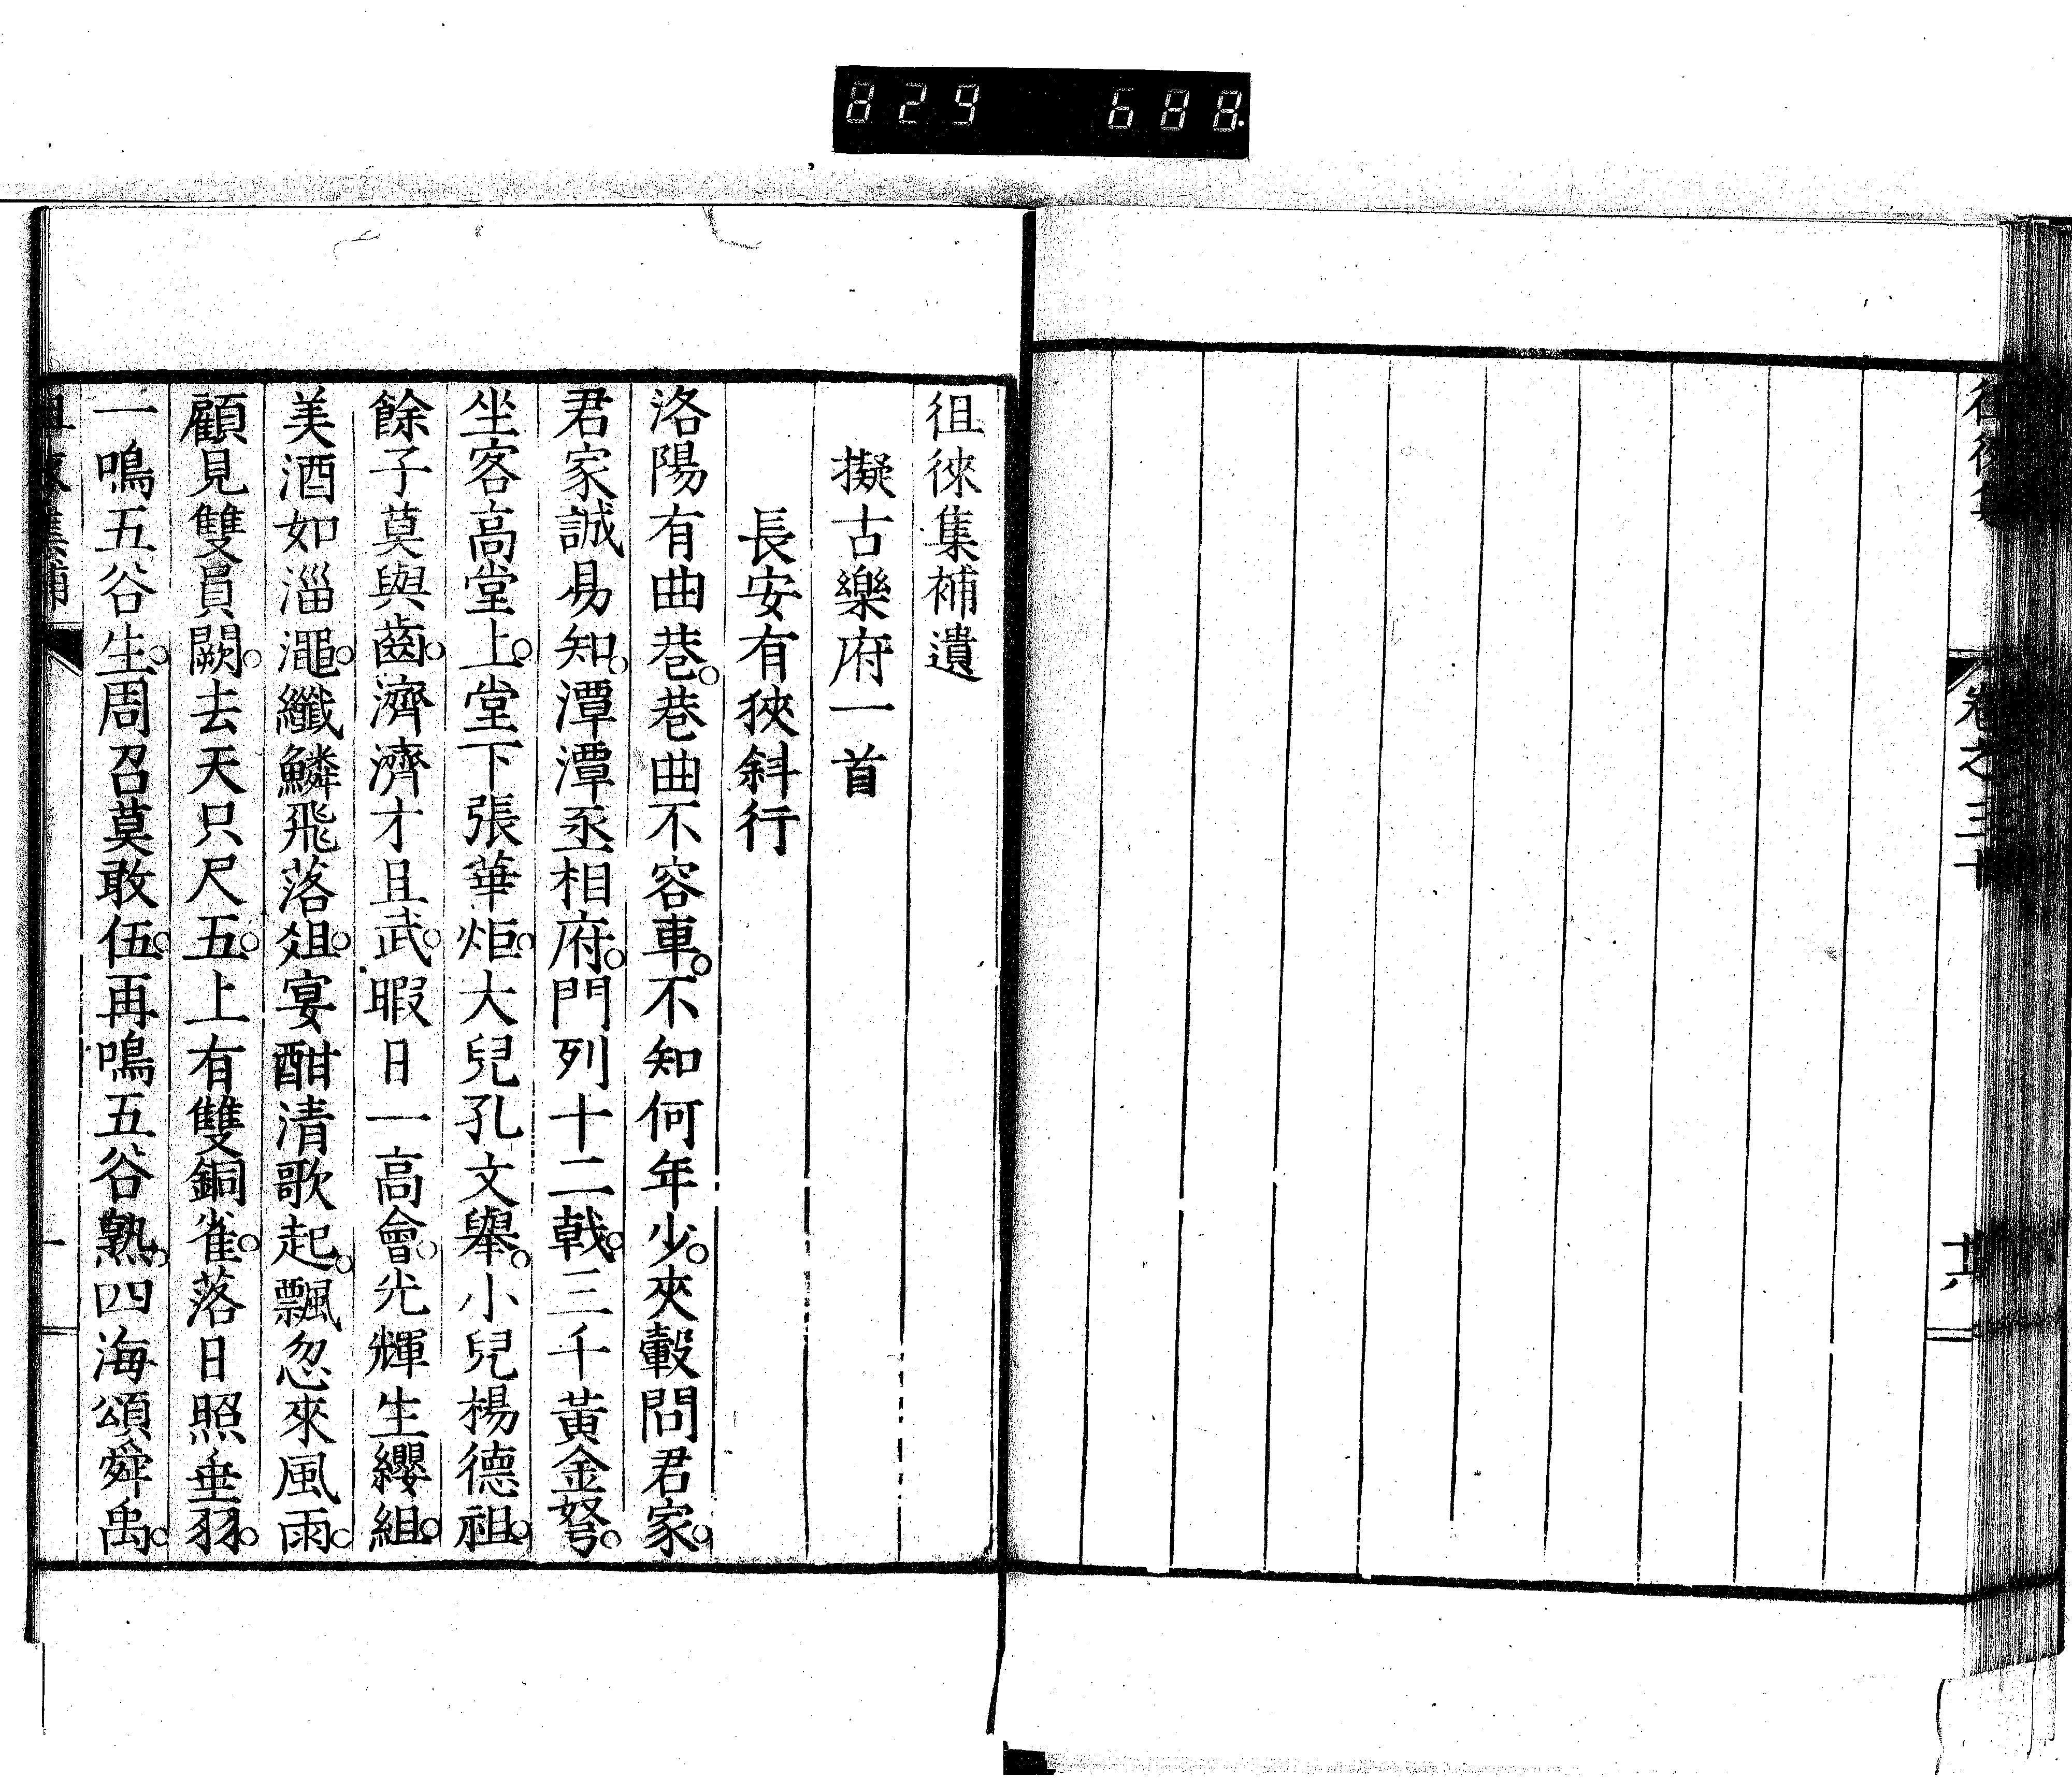 829 688
徂徠集
卷之三十
廿六
徂徠集補遺
擬古樂府一首
長安有狹斜行
洛陽有曲巷。巷曲不容車。不知何年少。夾轂問君家。
君家誠易知。潭潭丞相府。門列十二戟。三千黃金弩。
坐客高堂上。堂下張華炬。大兒孔文舉。小兒楊德祖。
餘子莫與齒。濟濟才且武。暇日一高會。光輝生纓組。
美酒如淄澠。纖鱗飛落俎。宴酣清歌起。飄忽來風雨。
顧見雙員闕。去天只尺五。上有雙銅雀。落日照垂羽。
一鳴五谷生。周召莫敢伍。再鳴五谷熟。四海頌舜禹。
徂徠集補
一